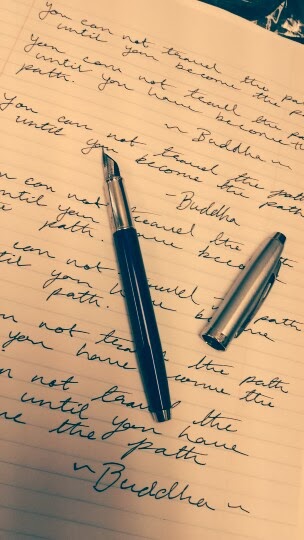 you can not travel the pa
until you become the pa
you can not teavel the pa
until you have become th
path.
~ Buddha ~
You can not travel the path
until you become the path
- Buddha
can not teavel the
until you have beco
path.
can not travel path
til you ha become
path.
n not teavel the path
you have come the
n not teavel the
until you have
me the path
~ Buddha ~